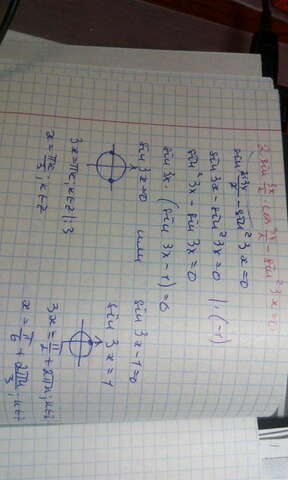 2 sin 3x/2 · cos 3x/2 − sin² 3x = 0
sin 3x − sin² 3x = 0
sin 3x − sin² 3x = 0 | · (−1)
sin² 3x − sin 3x = 0
sin 3x · (sin 3x − 1) = 0
sin 3x = 0 или sin 3x − 1 = 0
sin 3x = 1
3x = πk; k∈Z | : 3
3x = π/2 + 2πn; n∈Z
x = πk/3; k∈Z
x = π/6 + 2πn/3; n∈Z